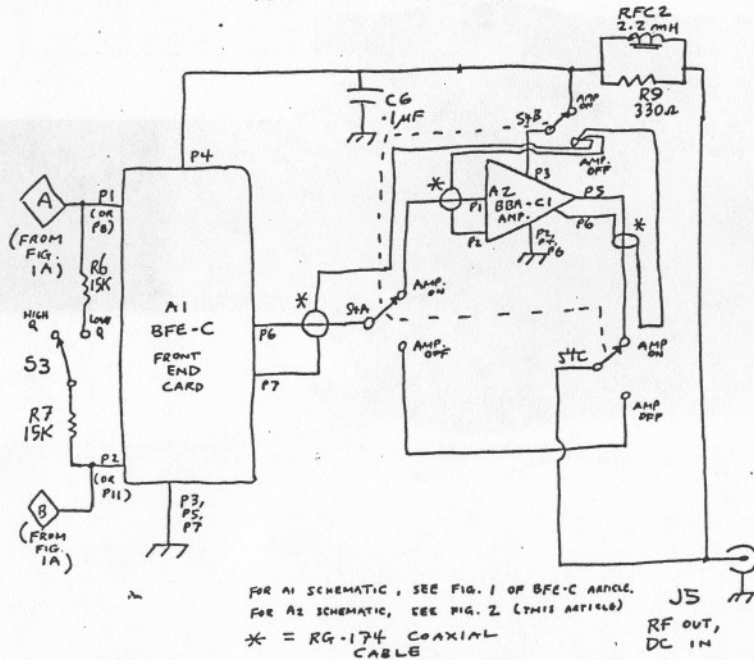 RFC2
2.2 mH
R9
330Ω
C6
.1µF
S4B
AMP
ON
AMP.
OFF
P4
A
(FROM
FIG.
1A)
P1
(OR
P8)
R6
15K
HIGH
Q
LOW
Q
S3
R7
15K
P2
(OR
P11)
B
(FROM
FIG.
1A)
A1
BFE-C
FRONT
END
CARD
P6
P7
P3,
P5,
P7
*
S4A
AMP.
ON
AMP.
OFF
*
P1
P2
P3
A2
BBA-C1
AMP.
P2,
P4,
P6
P5
P6
*
S4C
AMP
ON
AMP
OFF
FOR A1 SCHEMATIC, SEE FIG. 1 OF BFE-C ARTICLE.
FOR A2 SCHEMATIC, SEE FIG. 2 (THIS ARTICLE)
* = RG-174 COAXIAL
CABLE
J5
RF OUT,
DC IN